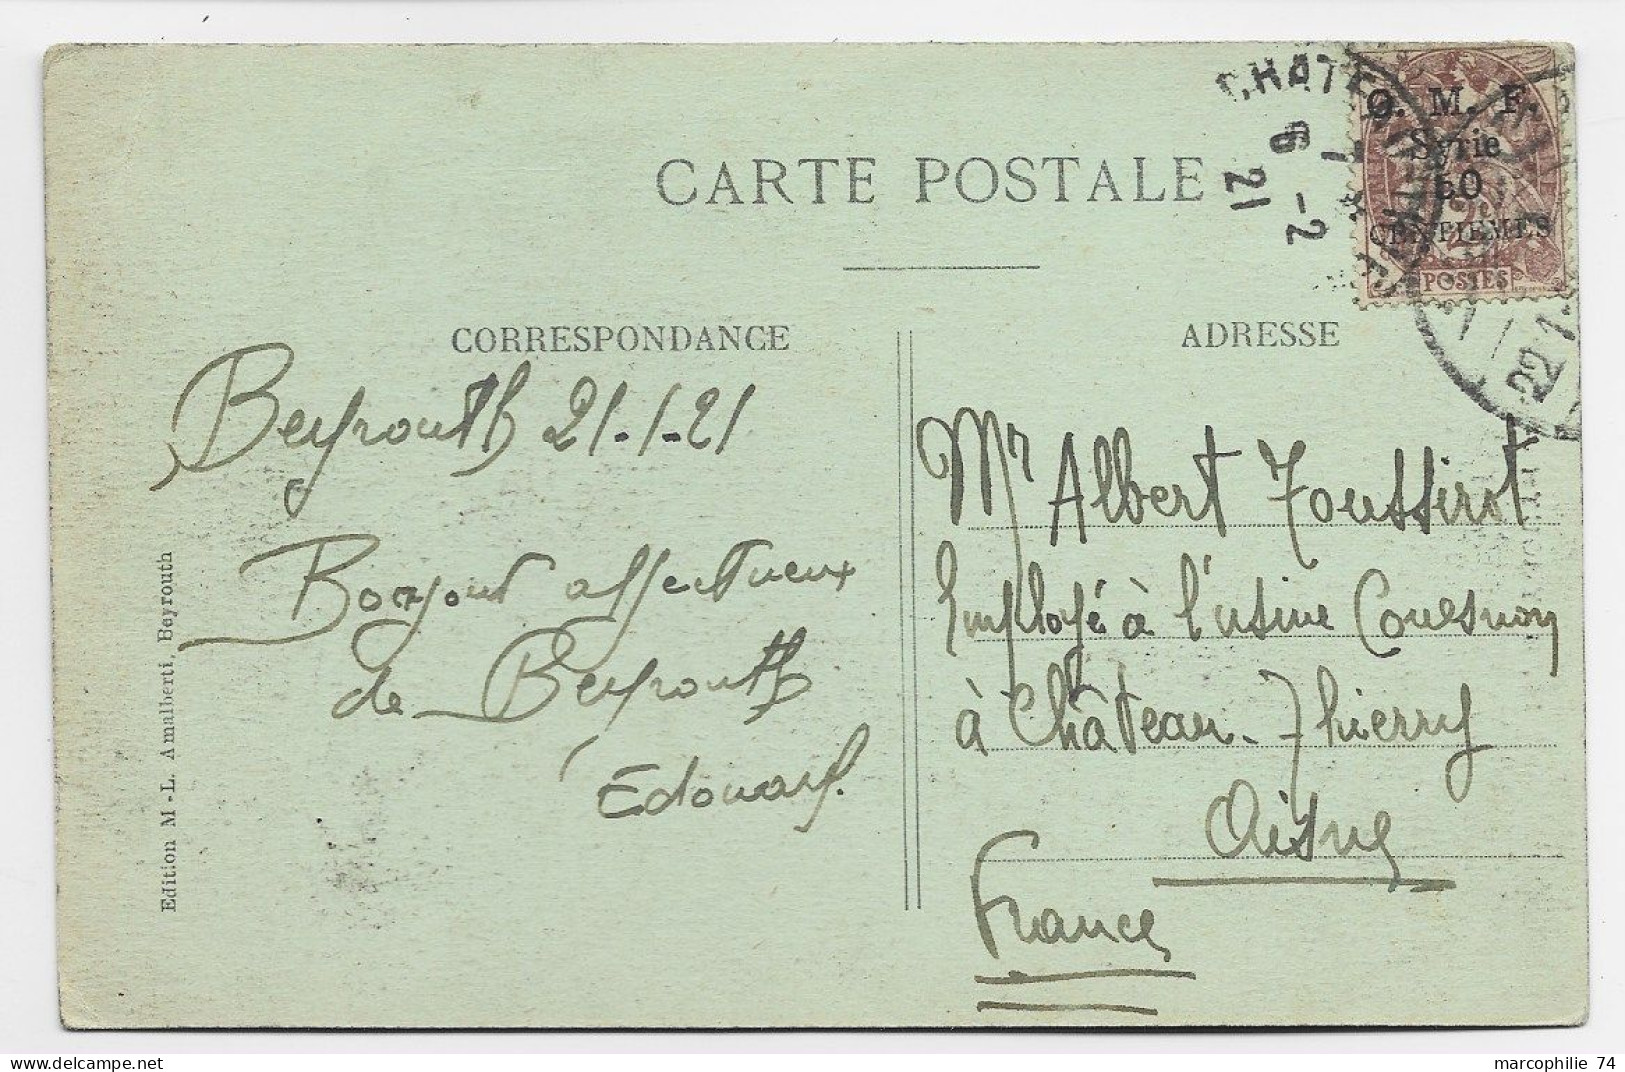 CARTE POSTALE
CORRESPONDANCE
ADRESSE
CHATE
6 -2
21
O. M. F.
Syrie
50
CENTIEMES
POSTES
22 1
Beyrouth 21-1-21
Bonjour affectueux
de Beyrouth
Edouard.
Mr Albert Toussirot
Employé à l'usine Couesnon
à Château-Thierry
Aisne
France
Edition M.-L. Amalberti, Beyrouth
marcophilie 74